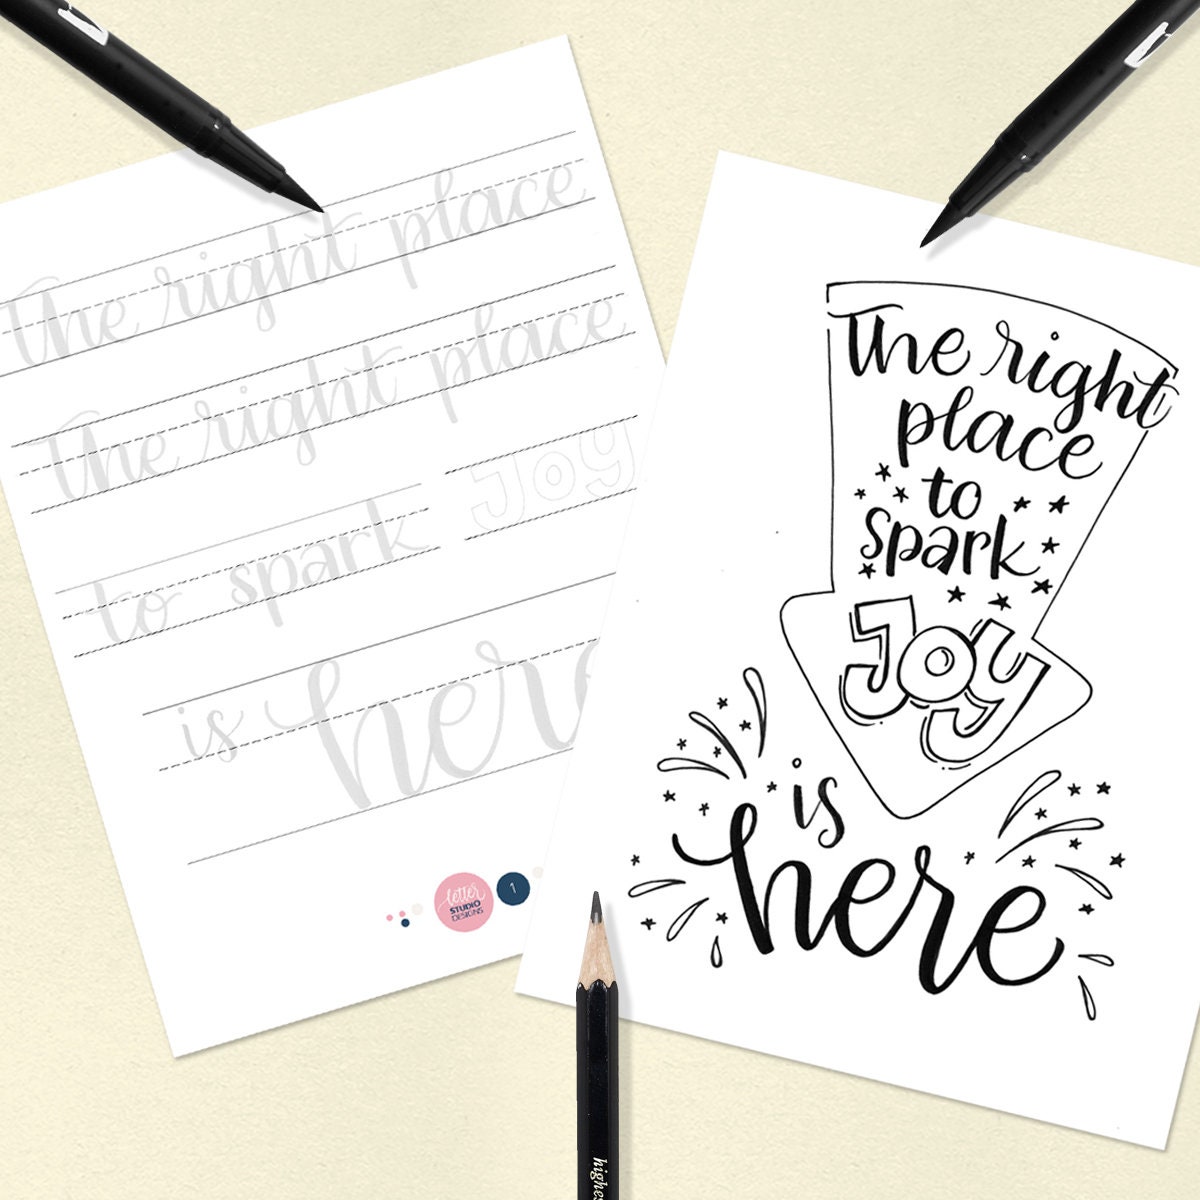 The right place
The right place
to spark Joy
is here
letter
STUDIO
DESIGNS
1
The right
place
to
spark
Joy
is
here
highes